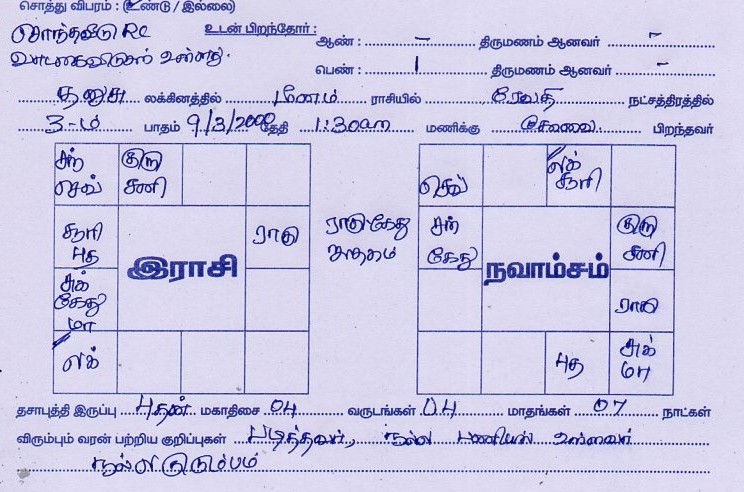 சொத்து விபரம் : (உண்டு / இல்லை)
சொந்தவீடு RC உடன் பிறந்தோர் : ஆண் : – திருமணம் ஆனவர் –
வாடகைவீடுகள் உள்ளது.
பெண் : 1 திருமணம் ஆனவர் –
தனுசு லக்கினத்தில் மீனம் ராசியில் ரேவதி நட்சத்திரத்தில்
3-ம் பாதம் 9/3/2000 தேதி 1:30am மணிக்கு சேலை பிறந்தவர்
சந் குரு செவ் லக்
செவ் சனி சூரி
சூரி ராகு ராகுகேது சந் குரு
புத இராசி ஜாதகம் கேது நவாம்சம் சனி
சுக் ராகு
கேது
மா
லக் புத சுக்
மா
தசாபுத்தி இருப்பு புதன் மகாதிசை 04 வருடங்கள் 04 மாதங்கள் 07 நாட்கள்
விரும்பும் வரன் பற்றிய குறிப்புகள் படித்தவர், நல்ல பணியில் உள்ளவர்
நல்ல குடும்பம்